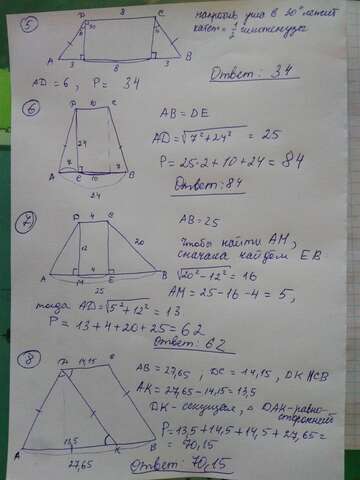 5
D
8
C
30°
A
3
8
3
B
напротив угла в 30° лежит
катет = 1/2 гипотенузы
AD = 6 , P = 34
Ответ: 34
6
D
10
C
24
A
7
E
10
7
B
24
AB = DE
AD = √7² + 24² = 25
P = 25·2 + 10 + 24 = 84
Ответ: 84
7
D
4
C
12
20
A
M
4
E
B
25
AB = 25
Чтобы найти AM,
сначала найдём EB
√20² − 12² = 16
AM = 25 − 16 − 4 = 5,
тогда AD = √5² + 12² = 13
P = 13 + 4 + 20 + 25 = 62
Ответ: 62
8
D
14,15
C
A
13,5
K
B
27,65
AB = 27,65, DC = 14,15, DK || CB
AK = 27,65 − 14,15 = 13,5
DK - секущая, △ DAK - равно-
сторонний
P = 13,5 + 14,5 + 14,5 + 27,65 =
= 70,15
Ответ: 70,15